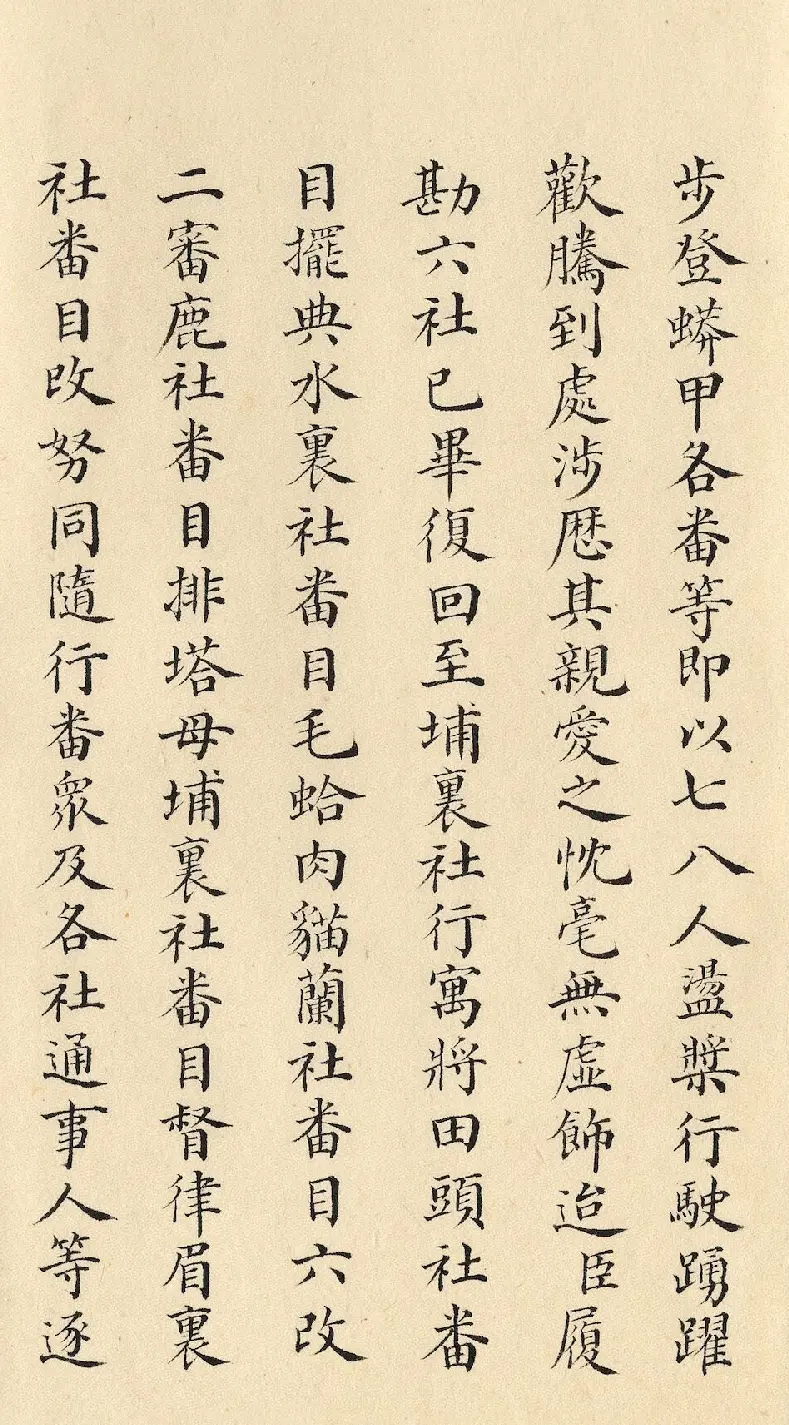 步登蟒甲各番等即以七八人盪槳行駛踴躍
歡騰到處涉歷其親愛之忱毫無虛飾迨臣履
勘六社已畢復回至埔裏社行寓將田頭社番
目擺典水裏社番目毛蛤肉貓蘭社番目六改
二審鹿社番目排塔母埔裏社番目督律眉裏
社番目改努同隨行番眾及各社通事人等逐